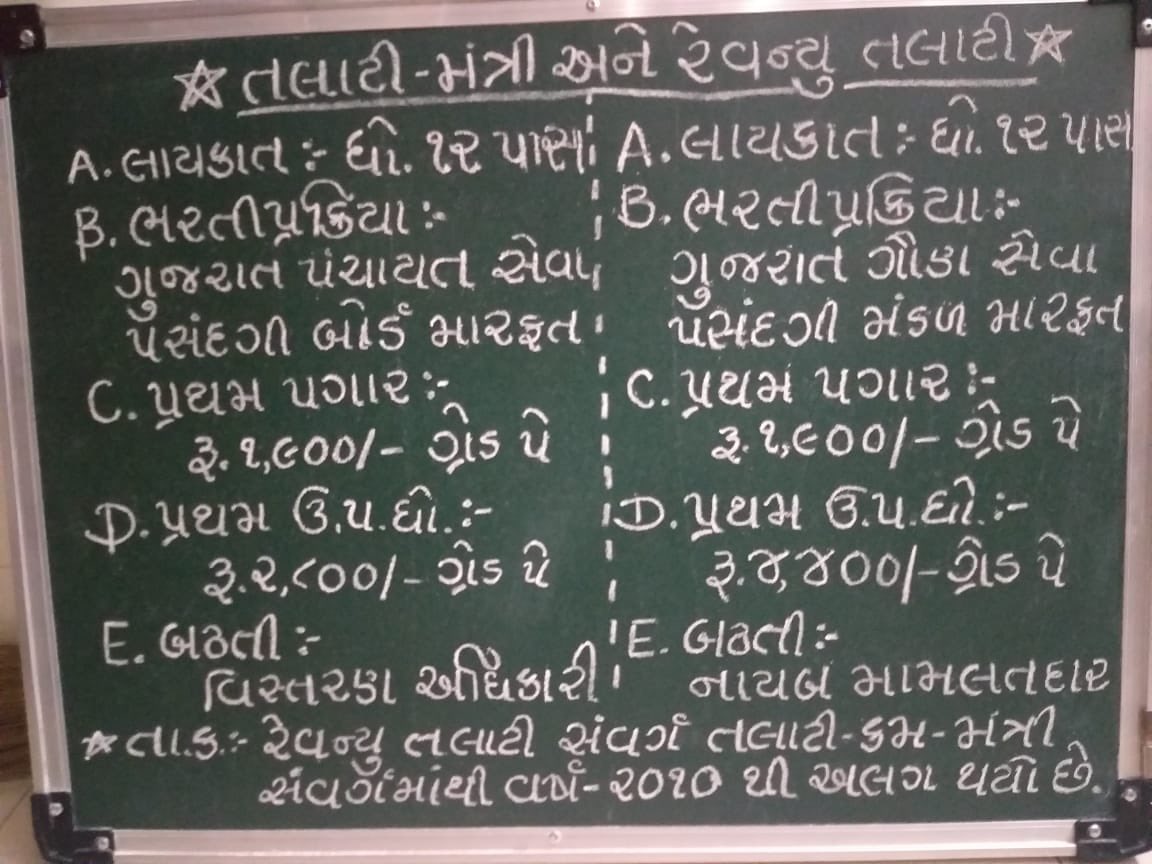 ☆ તલાટી-મંત્રી અને રેવન્યુ તલાટી ☆
A. લાયકાત :- ધો. ૧૨ પાસ
B. ભરતીપ્રક્રિયા :-
ગુજરાત પંચાયત સેવા
પસંદગી બોર્ડ મારફત
C. પ્રથમ પગાર :-
રૂ. ૧,૯૦૦/- ગ્રેડ પે
D. પ્રથમ ઉ.પ.ધો. :-
રૂ. ૨,૮૦૦/- ગ્રેડ પે
E. બઢતી :-
વિસ્તરણ અધિકારી
A. લાયકાત :- ધો. ૧૨ પાસ
B. ભરતીપ્રક્રિયા :-
ગુજરાત ગૌણ સેવા
પસંદગી મંડળ મારફત
C. પ્રથમ પગાર :-
રૂ. ૧,૯૦૦/- ગ્રેડ પે
D. પ્રથમ ઉ.પ.ધો. :-
રૂ. ૪,૪૦૦/- ગ્રેડ પે
E. બઢતી :-
નાયબ મામલતદાર
☆ તા.ક. :- રેવન્યુ તલાટી સંવર્ગ તલાટી-કમ-મંત્રી
સંવર્ગમાંથી વર્ષ-૨૦૧૦ થી અલગ થયો છે.